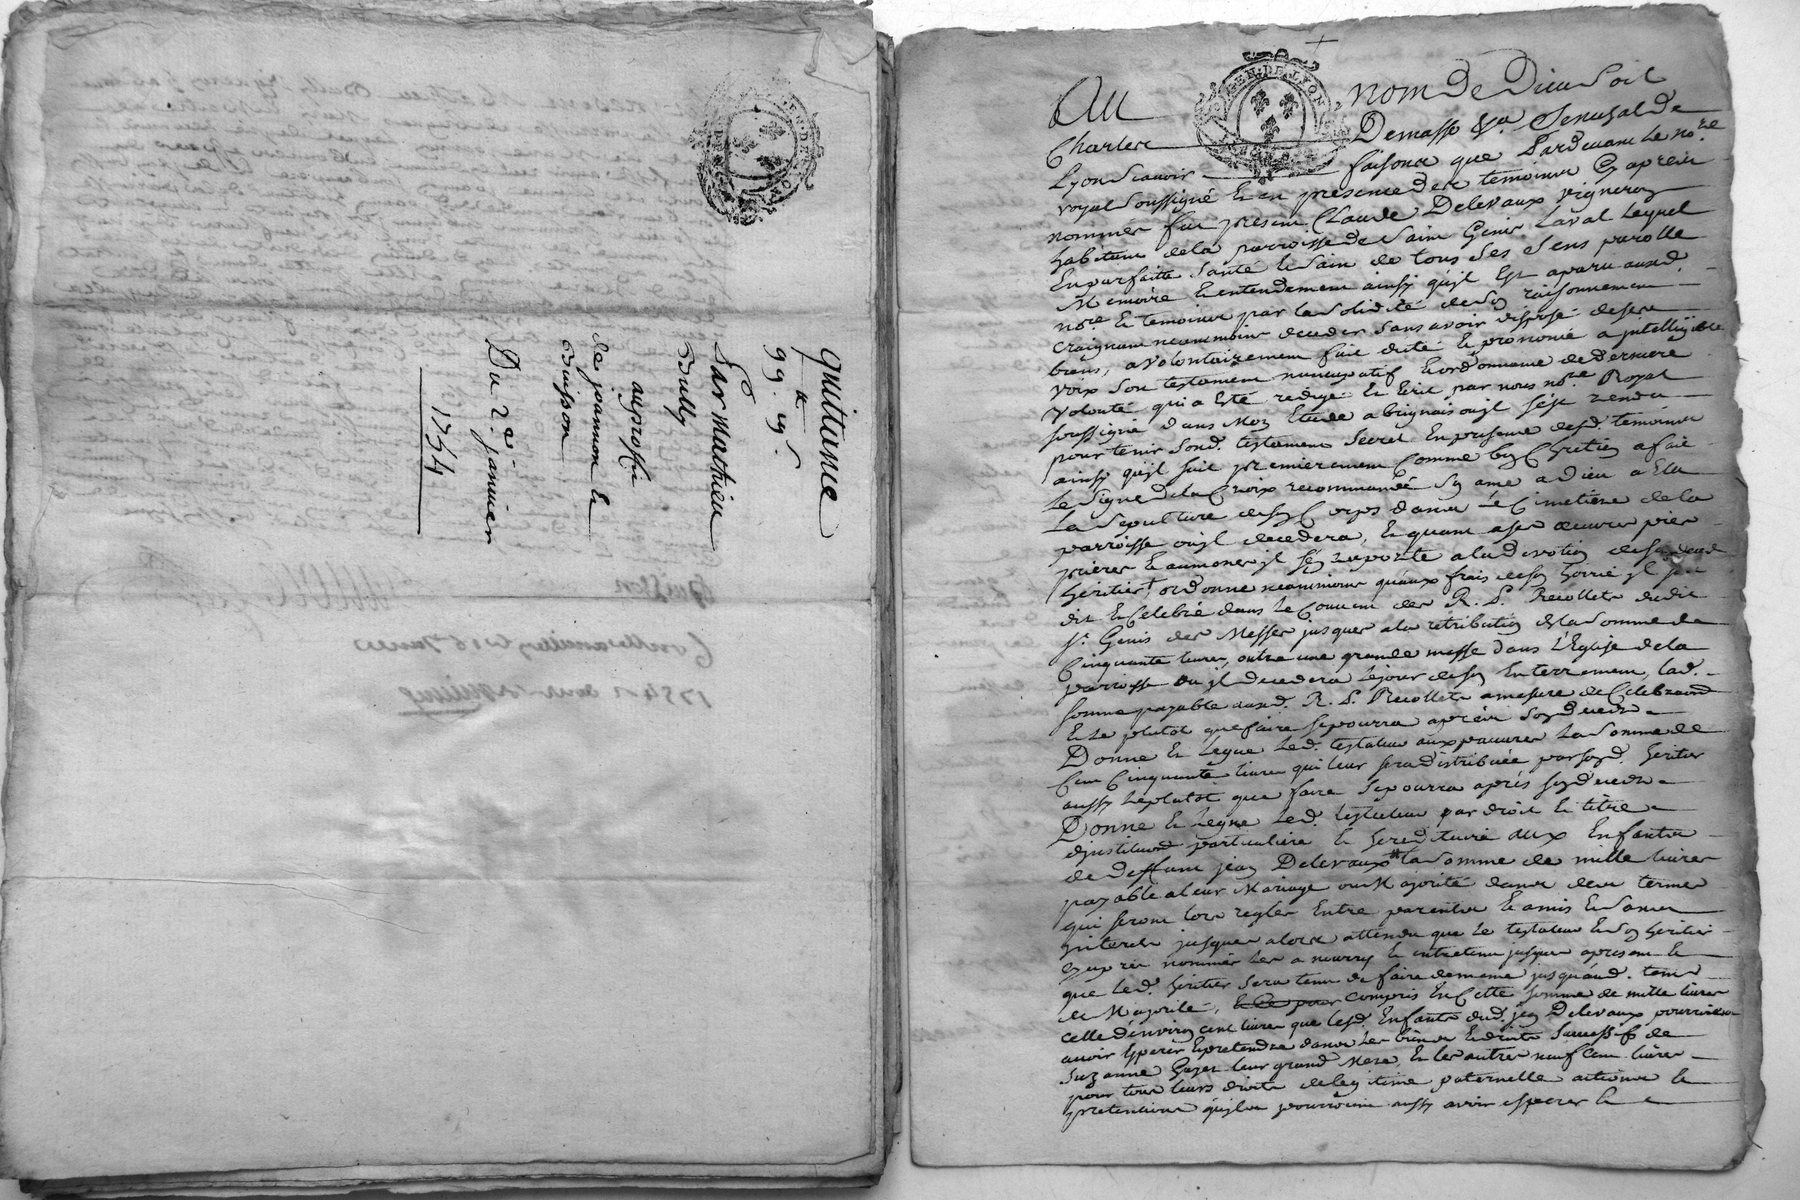 quittance
99 ₶ 19 s.
Par Mathieu
Bully
au proffit
de joannon le
Buisson
Du 2e janvier
1754
GEN. DE LYON
Au nom De Dieu Soit
Charles Demasso Sénéchal De
Lyon Scavoir faisons que Pardevant Le nore
royal Soussigné Et en presence des temoins Cy apres
nommés fut present Claude Delevaux vigneron
habitant de la parroisse de Saint Genis Laval Lequel
En parfaitte Santé Et Sain de tous Ses Sens parolle
Memoire Et entendement ainsy qu'jl Est aparu aud.
nore Et temoins par La Solidité de Son raisonnement
Craignant neanmoins deceder Sans avoir disposé de ses
biens, a Volontairement fait dicté Et prononcé a jntelligible
voix Son testament nuncupatif Et ordonnance de derniere
Volonté qui a Eté redigé Et Ecrit par nous nore Royal
soussigné dans Mon Etude a brignais ou jl s'est rendu
pour tenir Sond. testament Secret En presence desd. temoins
ainsy qu'jl suit premierement Comme bon Chretien a fait
Le Signe de la Croix recommandé Son ame a Dieu a Elu
La Sepulture de son Corps dans Le Cimetiere de la
parroisse ou jl decedera, Et quant a ses oeuvres pies
prieres Et aumones jl s'en raporte a la devotion de sond.
heritier, ordonne neanmoins qu'aux frais de son hoirie jl soit
dit Et Celebré dans Le Couvent des R. P. Recollets dudit
St. Genis des Messes jusques a la retribution de la Somme de
Cinquante livres, outre une grande messe dans L'Eglise de la
parroisse ou jl decedera Le jour de son Enterrement, lad.
somme payable auxd. R. P. Recollets a mesure de Celebration
Et Le plutot que faire se pourra apres son deces
Donne Et Legue Led. testateur aux pauvres La Somme de
Cent Cinquante livres qui leur sera distribuée par sond. heritier
aussy Le plutot que faire se pourra après son deces
Donne Et Legue Led. testateur par droit Et titre
d'jnstitution particuliere Et hereditaire aux Enfants
de deffunt jean Delevaux La Somme de mille livres
payable a leur Mariage ou Majorité dans des termes
qui seront lors regles Entre parents Et amis Et Sans
jnterets jusques alors attendu que Le testateur Et Son heritier
cy apres nommé Les a nourry Et entretenu jusques a present Et
que Led. heritier Sera tenu de faire de meme jusqu'aud. tems
de Majorité, compris En Cette somme de mille livres
celle d'environ cent livres que lesd. Enfants dud. jean Delevaux pourroient
avoir Esperer Et pretendre dans Les biens Et droits Successifs de
Suzanne leur grand Mere, Et les autres neuf Cent livres
pour tous leurs droits de legitime paternelle actions Et
pretentions qu'jls pourroient aussy avoir esperer Et